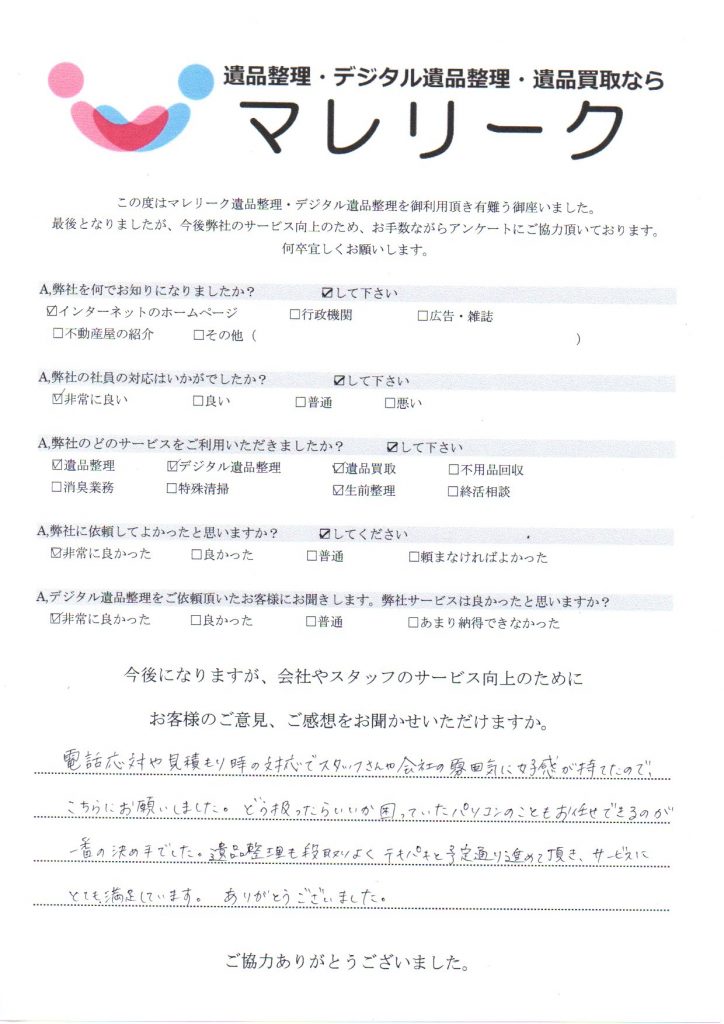 遺品整理・デジタル遺品整理・遺品買取なら
マレリーク
この度はマレリーク遺品整理・デジタル遺品整理を御利用頂き有難う御座いました。
最後となりましたが、今後弊社のサービス向上のため、お手数ながらアンケートにご協力頂いております。
何卒宜しくお願いします。
A,弊社を何でお知りになりましたか？ ☑して下さい
☑インターネットのホームページ □行政機関 □広告・雑誌
□不動産屋の紹介 □その他（ ）
A,弊社の社員の対応はいかがでしたか？ ☑して下さい
☑非常に良い □良い □普通 □悪い
A,弊社のどのサービスをご利用いただきましたか？ ☑して下さい
☑遺品整理 ☑デジタル遺品整理 ☑遺品買取 □不用品回収
□消臭業務 □特殊清掃 ☑生前整理 □終活相談
A,弊社に依頼してよかったと思いますか？ ☑してください
☑非常に良かった □良かった □普通 □頼まなければよかった
A,デジタル遺品整理をご依頼頂いたお客様にお聞きします。弊社サービスは良かったと思いますか？
☑非常に良かった □良かった □普通 □あまり納得できなかった
今後になりますが、会社やスタッフのサービス向上のために
お客様のご意見、ご感想をお聞かせいただけますか。
電話応対や見積もり時の対応でスタッフさんや会社の雰囲気に好感が持てたので、
こちらにお願いしました。どう扱ったらいいか困っていたパソコンのこともお任せできるのが
一番の決め手でした。遺品整理も段取りよくテキパキと予定通り進めて頂き、サービスに
とても満足しています。ありがとうございました。
ご協力ありがとうございました。